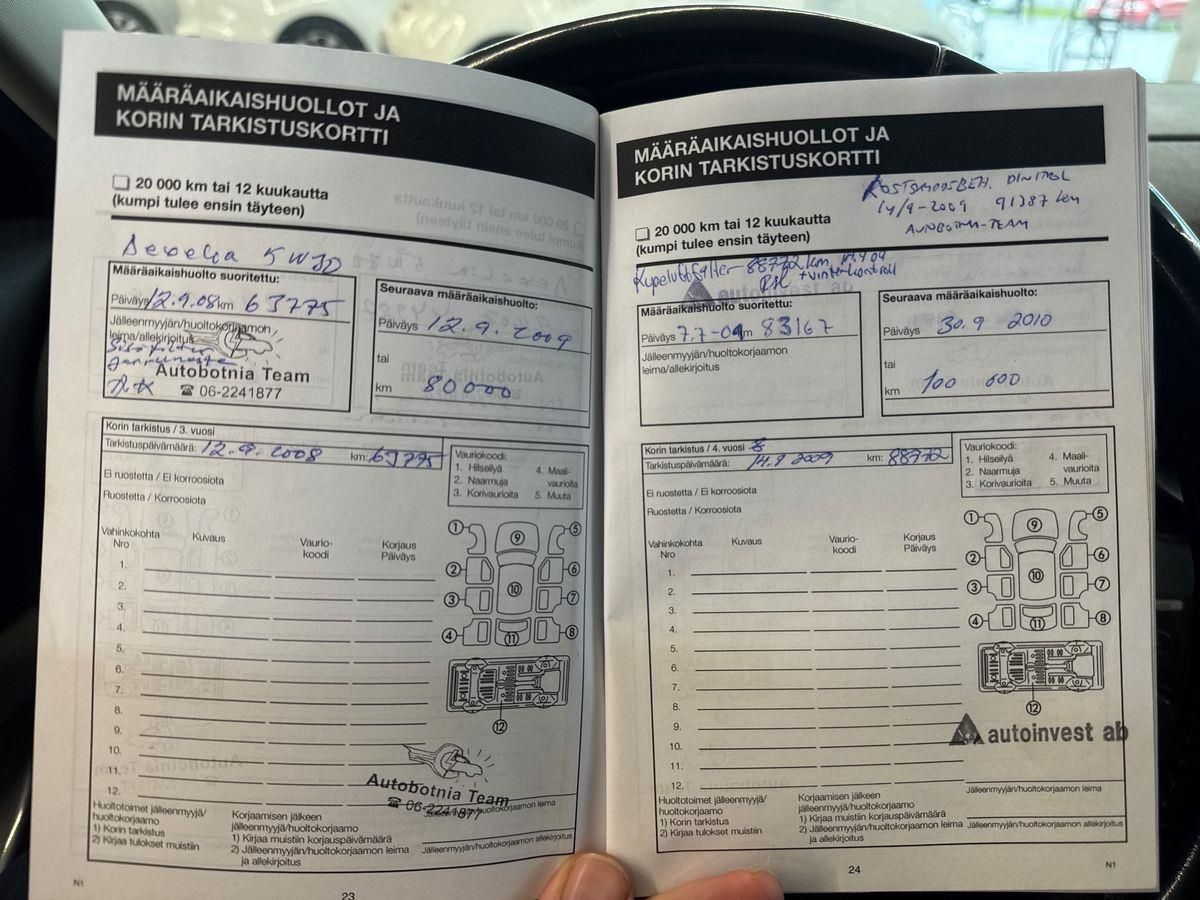 MÄÄRÄAIKAISHUOLLOT JA
KORIN TARKISTUSKORTTI
20 000 km tai 12 kuukautta
(kumpi tulee ensin täyteen)
5W30
Määräaikaishuolto suoritettu:
Päiväys 12.9.08 km 63775
Jälleenmyyjän/huoltokorjaamon
leima/allekirjoitus
Autobotnia Team
☎ 06-2241877
Seuraava määräaikaishuolto:
Päiväys 12.9.2009
tai
km 80000
Korin tarkistus / 3. vuosi
Tarkistuspäivämäärä: 12.9.2008 km: 63775
Ei ruostetta / Ei korroosiota
Ruostetta / Korroosiota
Vauriokoodi:
1. Hilseilyä 4. Maali-
2. Naarmuja vaurioita
3. Korivaurioita 5. Muuta
Vahinkokohta Kuvaus Vaurio- Korjaus
Nro koodi Päiväys
1.
2.
3.
4.
5.
6.
7.
8.
9.
10.
11.
12.
1 9 5
2 10 6
3 7
4 11 8
12
Autobotnia Team
☎ 06-2241877
Huoltotoimet jälleenmyyjä/
huoltokorjaamo
1) Korin tarkistus
2) Kirjaa tulokset muistiin
Korjaamisen jälkeen
jälleenmyyjä/huoltokorjaamo
1) Kirjaa muistiin korjauspäivämäärä
2) Jälleenmyyjän/huoltokorjaamon leima
ja allekirjoitus
Jälleenmyyjän/huoltokorjaamon leima
Jälleenmyyjän/huoltokorjaamon allekirjoitus
N1
23
MÄÄRÄAIKAISHUOLLOT JA
KORIN TARKISTUSKORTTI
DINITROL
14/9-2009 91387 km
AUTOBOTNIA-TEAM
20 000 km tai 12 kuukautta
(kumpi tulee ensin täyteen)
88772 km
vinterkontroll
autoinvest ab
Määräaikaishuolto suoritettu:
Päiväys 7.7-09 km 83167
Jälleenmyyjän/huoltokorjaamon
leima/allekirjoitus
Seuraava määräaikaishuolto:
Päiväys 30.9 2010
tai
km 100 000
Korin tarkistus / 4. vuosi
Tarkistuspäivämäärä: 14.9 2009 km: 88772
Ei ruostetta / Ei korroosiota
Ruostetta / Korroosiota
Vauriokoodi:
1. Hilseilyä 4. Maali-
2. Naarmuja vaurioita
3. Korivaurioita 5. Muuta
Vahinkokohta Kuvaus Vaurio- Korjaus
Nro koodi Päiväys
1.
2.
3.
4.
5.
6.
7.
8.
9.
10.
11.
12.
1 9 5
2 10 6
3 7
4 11 8
12
autoinvest ab
Huoltotoimet jälleenmyyjä/
huoltokorjaamo
1) Korin tarkistus
2) Kirjaa tulokset muistiin
Korjaamisen jälkeen
jälleenmyyjä/huoltokorjaamo
1) Kirjaa muistiin korjauspäivämäärä
2) Jälleenmyyjän/huoltokorjaamon leima
ja allekirjoitus
Jälleenmyyjän/huoltokorjaamon leima
Jälleenmyyjän/huoltokorjaamon allekirjoitus
24
N1